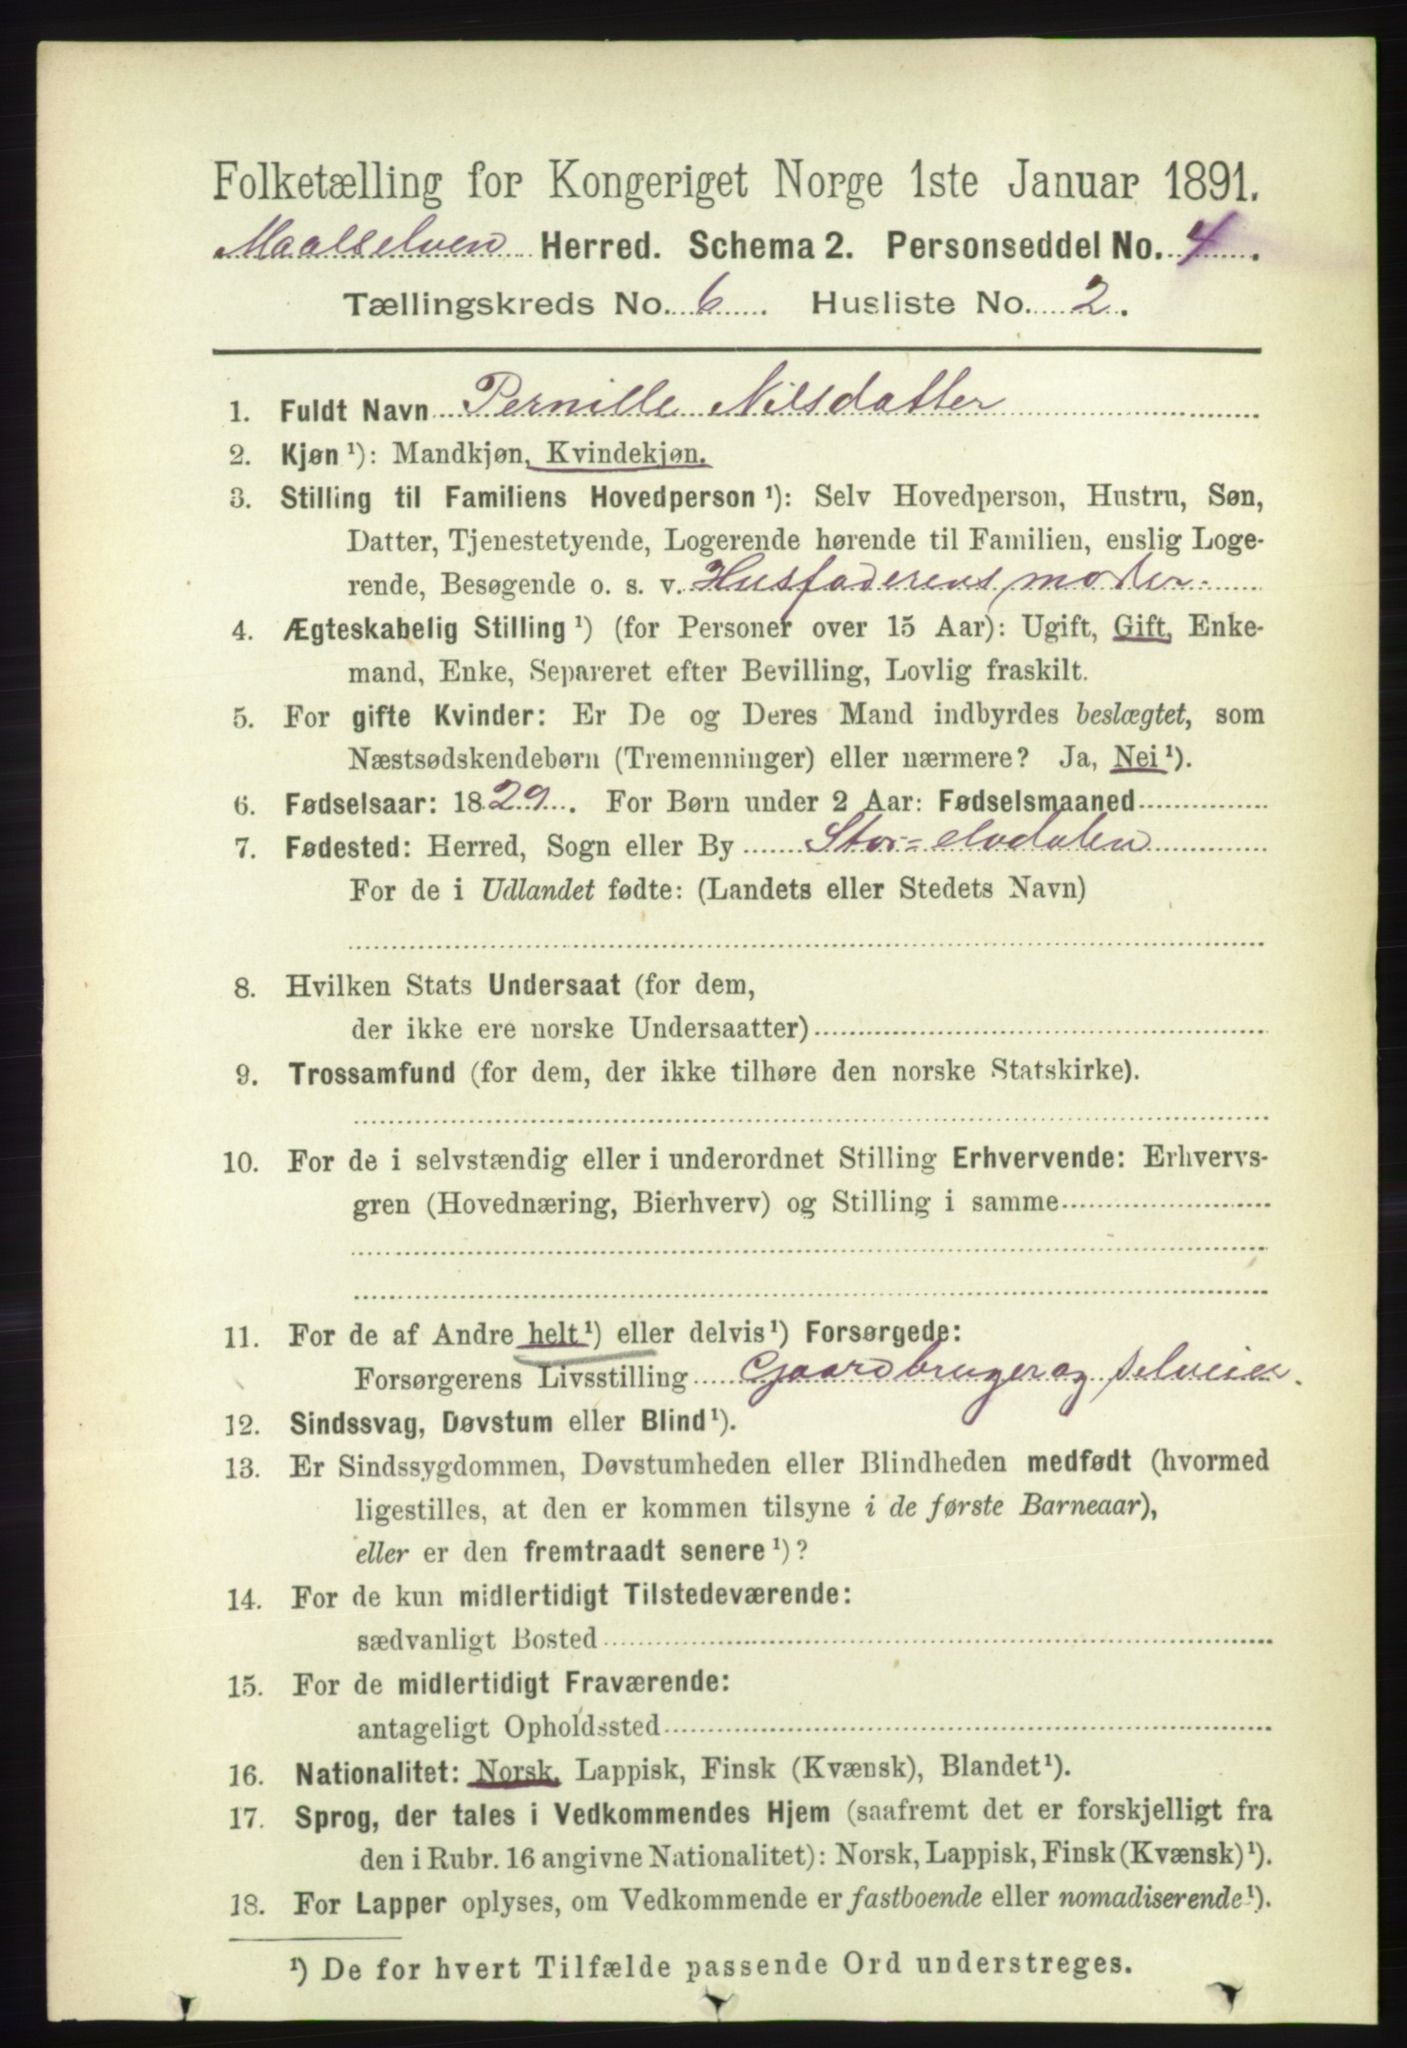 Folketælling for Kongeriget Norge 1ste Januar 1891.
Maalselven Herred. Schema 2. Personseddel No. 4.
Tællingskreds No. 6. Husliste No. 2.
1. Fuldt Navn Pernille Nilsdatter
2. Kjøn ¹): Mandkjøn, Kvindekjøn.
3. Stilling til Familiens Hovedperson ¹): Selv Hovedperson, Hustru, Søn,
Datter, Tjenestetyende, Logerende hørende til Familien, enslig Loge-
rende, Besøgende o. s. v. Husfaderens moder.
4. Ægteskabelig Stilling ¹) (for Personer over 15 Aar): Ugift, Gift, Enke-
mand, Enke, Separeret efter Bevilling, Lovlig fraskilt.
5. For gifte Kvinder: Er De og Deres Mand indbyrdes beslægtet, som
Næstsødskendebørn (Tremenninger) eller nærmere? Ja, Nei ¹).
6. Fødselsaar: 1829. For Børn under 2 Aar: Fødselsmaaned
7. Fødested: Herred, Sogn eller By Stor-elvdalen
For de i Udlandet fødte: (Landets eller Stedets Navn)
8. Hvilken Stats Undersaat (for dem,
der ikke ere norske Undersaatter)
9. Trossamfund (for dem, der ikke tilhøre den norske Statskirke).
10. For de i selvstændig eller i underordnet Stilling Erhvervende: Erhvervs-
gren (Hovednæring, Bierhverv) og Stilling i samme
11. For de af Andre helt ¹) eller delvis ¹) Forsørgede:
Forsørgerens Livsstilling Gaardbruger og selveier.
12. Sindssvag, Døvstum eller Blind ¹).
13. Er Sindssygdommen, Døvstumheden eller Blindheden medfødt (hvormed
ligestilles, at den er kommen tilsyne i de første Barneaar),
eller er den fremtraadt senere ¹)?
14. For de kun midlertidigt Tilstedeværende:
sædvanligt Bosted
15. For de midlertidigt Fraværende:
antageligt Opholdssted
16. Nationalitet: Norsk, Lappisk, Finsk (Kvænsk), Blandet ¹).
17. Sprog, der tales i Vedkommendes Hjem (saafremt det er forskjelligt fra
den i Rubr. 16 angivne Nationalitet): Norsk, Lappisk, Finsk (Kvænsk) ¹).
18. For Lapper oplyses, om Vedkommende er fastboende eller nomadiserende ¹).
¹) De for hvert Tilfælde passende Ord understreges.